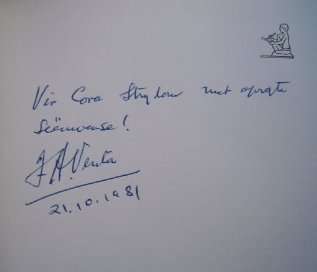 Vir Cora Strydom met opregte
Seënwense!
F A Venter
21.10.1981